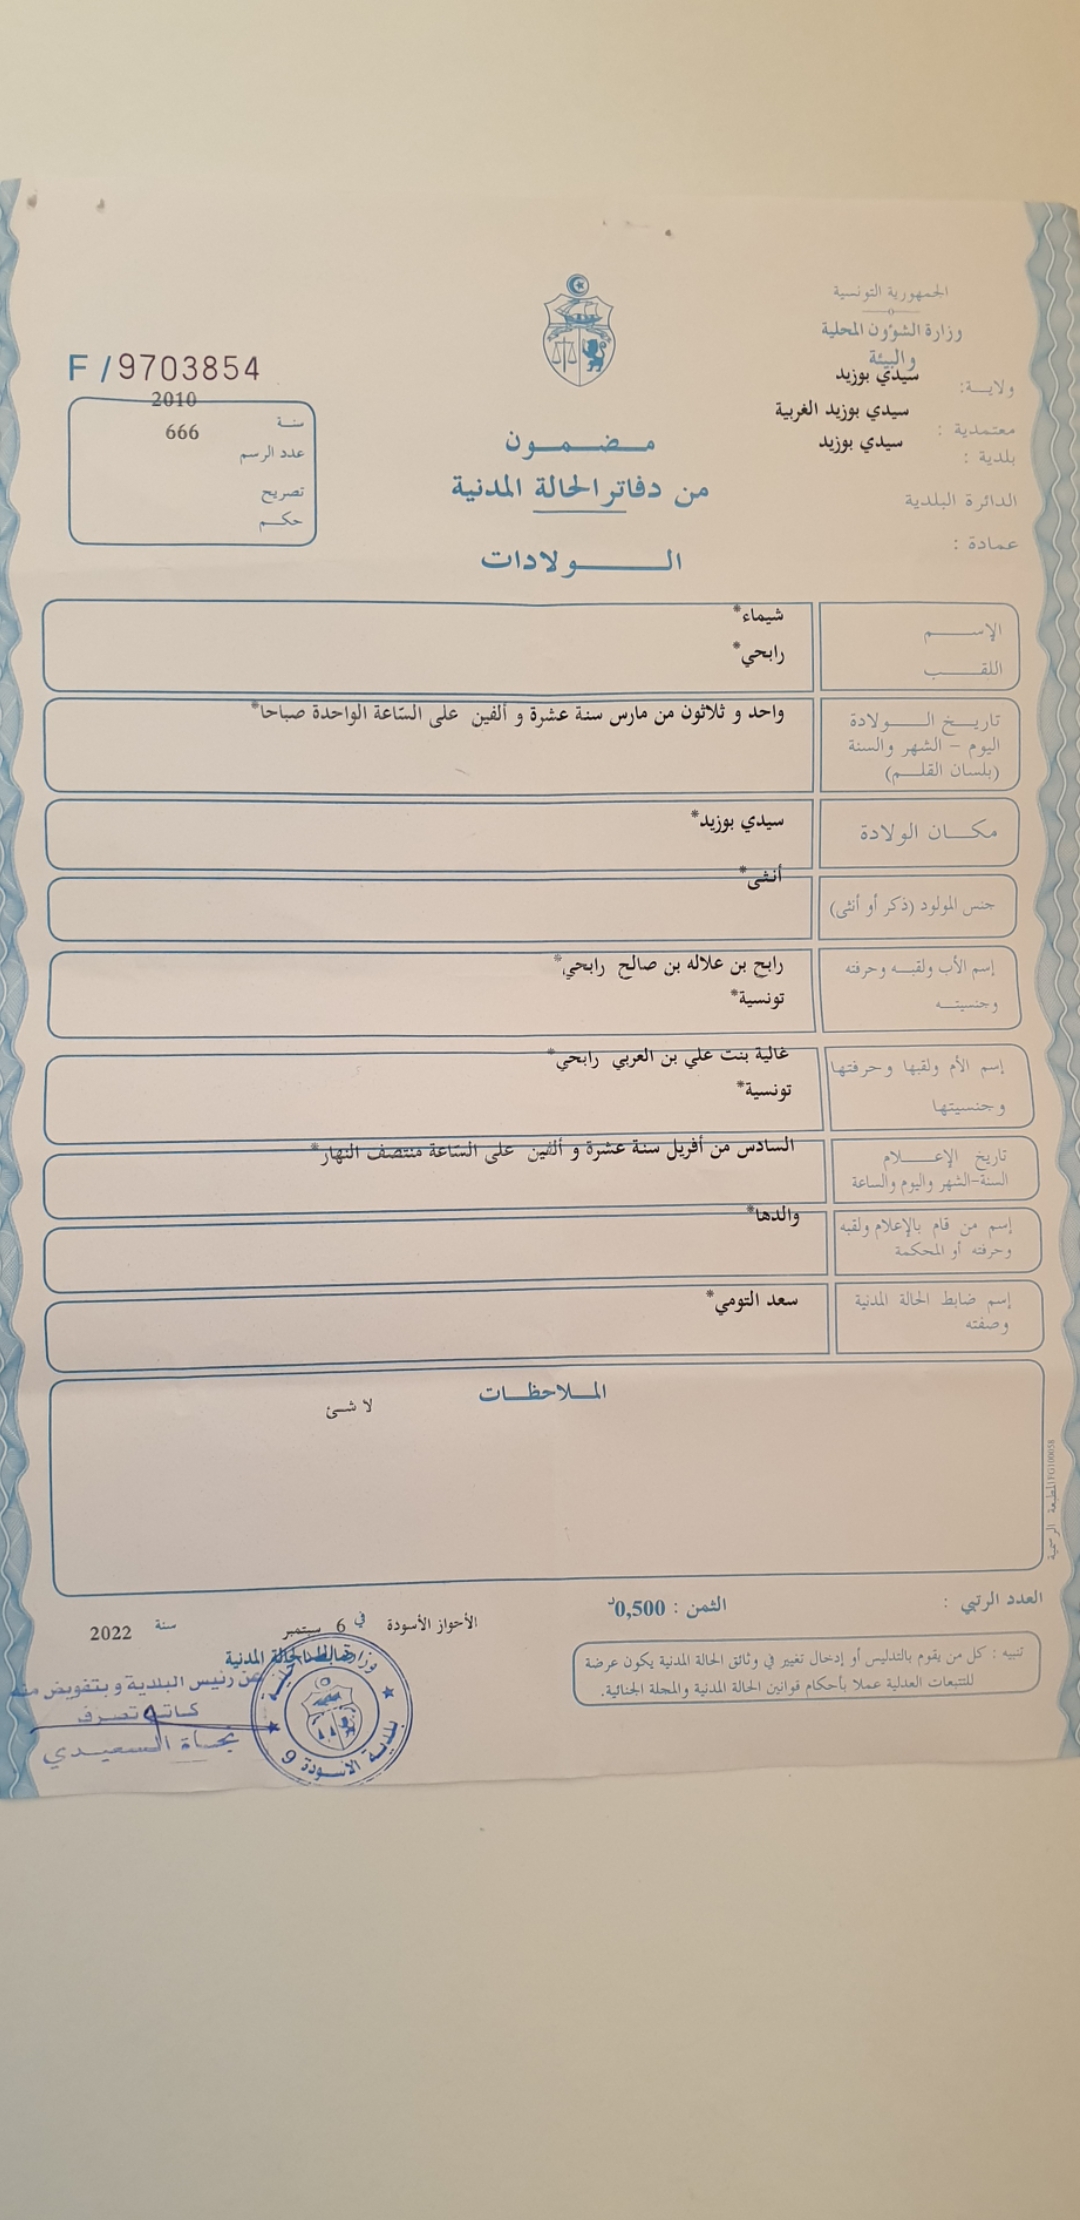 الجمهورية التونسية
وزارة الشؤون المحلية
والبيئة
ولايـــة: سيدي بوزيد
معتمدية : سيدي بوزيد الغربية
بلدية : سيدي بوزيد
الدائرة البلدية
عمادة :
F / 9703854
سنة 2010
عدد الرسم 666
تصريح
حكم
مضمون
من دفاتر الحالة المدنية
الولادات
الإسم شيماء*
اللقب رابحي*
تاريخ الولادة واحد و ثلاثون من مارس سنة عشرة و ألفين على السّاعة الواحدة صباحا*
اليوم - الشهر والسنة
(بلسان القلم)
مكان الولادة سيدي بوزيد*
جنس المولود (ذكر أو أنثى) أنثى*
إسم الأب ولقبه وحرفته رابح بن علاله بن صالح رابحي*
وجنسيته تونسية*
إسم الأم ولقبها وحرفتها غالية بنت علي بن العربي رابحي*
وجنسيتها تونسية*
تاريخ الإعلام السادس من أفريل سنة عشرة و ألفين على السّاعة منتصف النهار*
السنة-الشهر واليوم والساعة
إسم من قام بالإعلام ولقبه والدها*
وحرفته أو المحكمة
إسم ضابط الحالة المدنية سعد التومي*
وصفته
الملاحظات
لا شئ
المطبعة الرسمية FG100058
العدد الرتبي :
الثمن : 0,500د
الأحواز الأسودة في 6 سبتمبر سنة 2022
ضابط الحالة المدنية
تنبيه : كل من يقوم بالتدليس أو إدخال تغيير في وثائق الحالة المدنية يكون عرضة
للتتبعات العدلية عملا بأحكام قوانين الحالة المدنية والمجلة الجنائية.
عن رئيس البلدية و بتفويض منه
كاتب تصرف
نجاة السعيدي
بلدية الأسودة 9